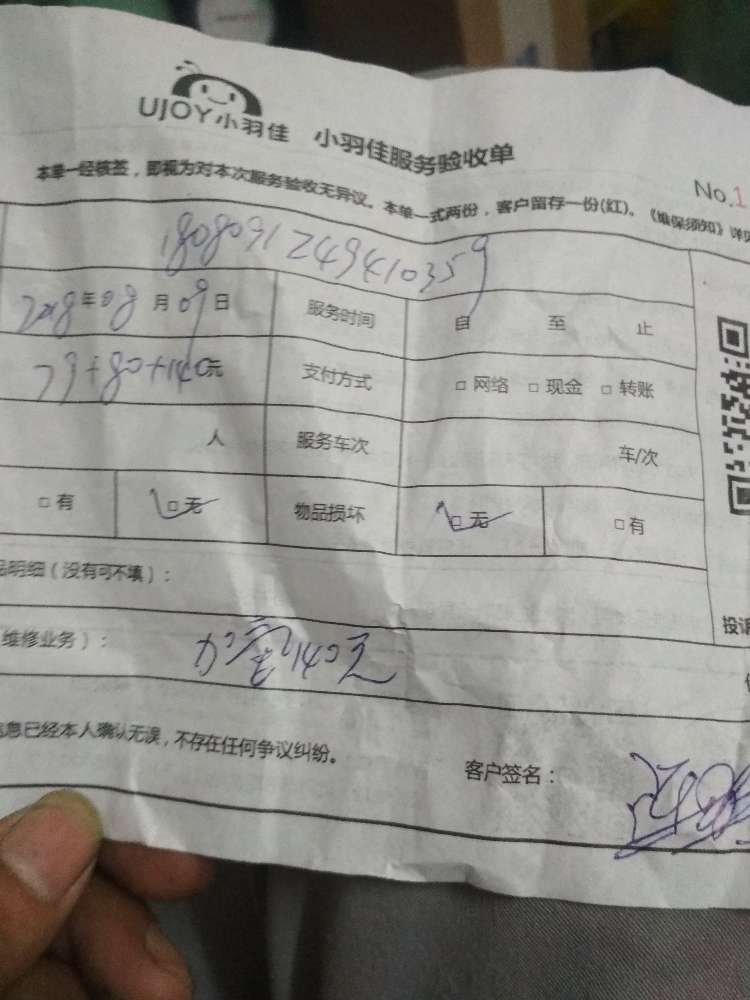 UJOY小羽佳 小羽佳服务验收单
No.1
本单一经核签，即视为对本次服务验收无异议。本单一式两份，客户留存一份(红)。《维保须知》详见
1808091249410359
2018年08月09日 服务时间 自 至 止
79+80+140元 支付方式 □ 网络 □ 现金 □ 转账
人 服务车次 车/次
□ 有 □ 无 物品损坏 □ 无 □ 有
品明细（没有可不填）：
投诉
维修业务）： 加氟140元
信息已经本人确认无误，不存在任何争议纠纷。
客户签名：